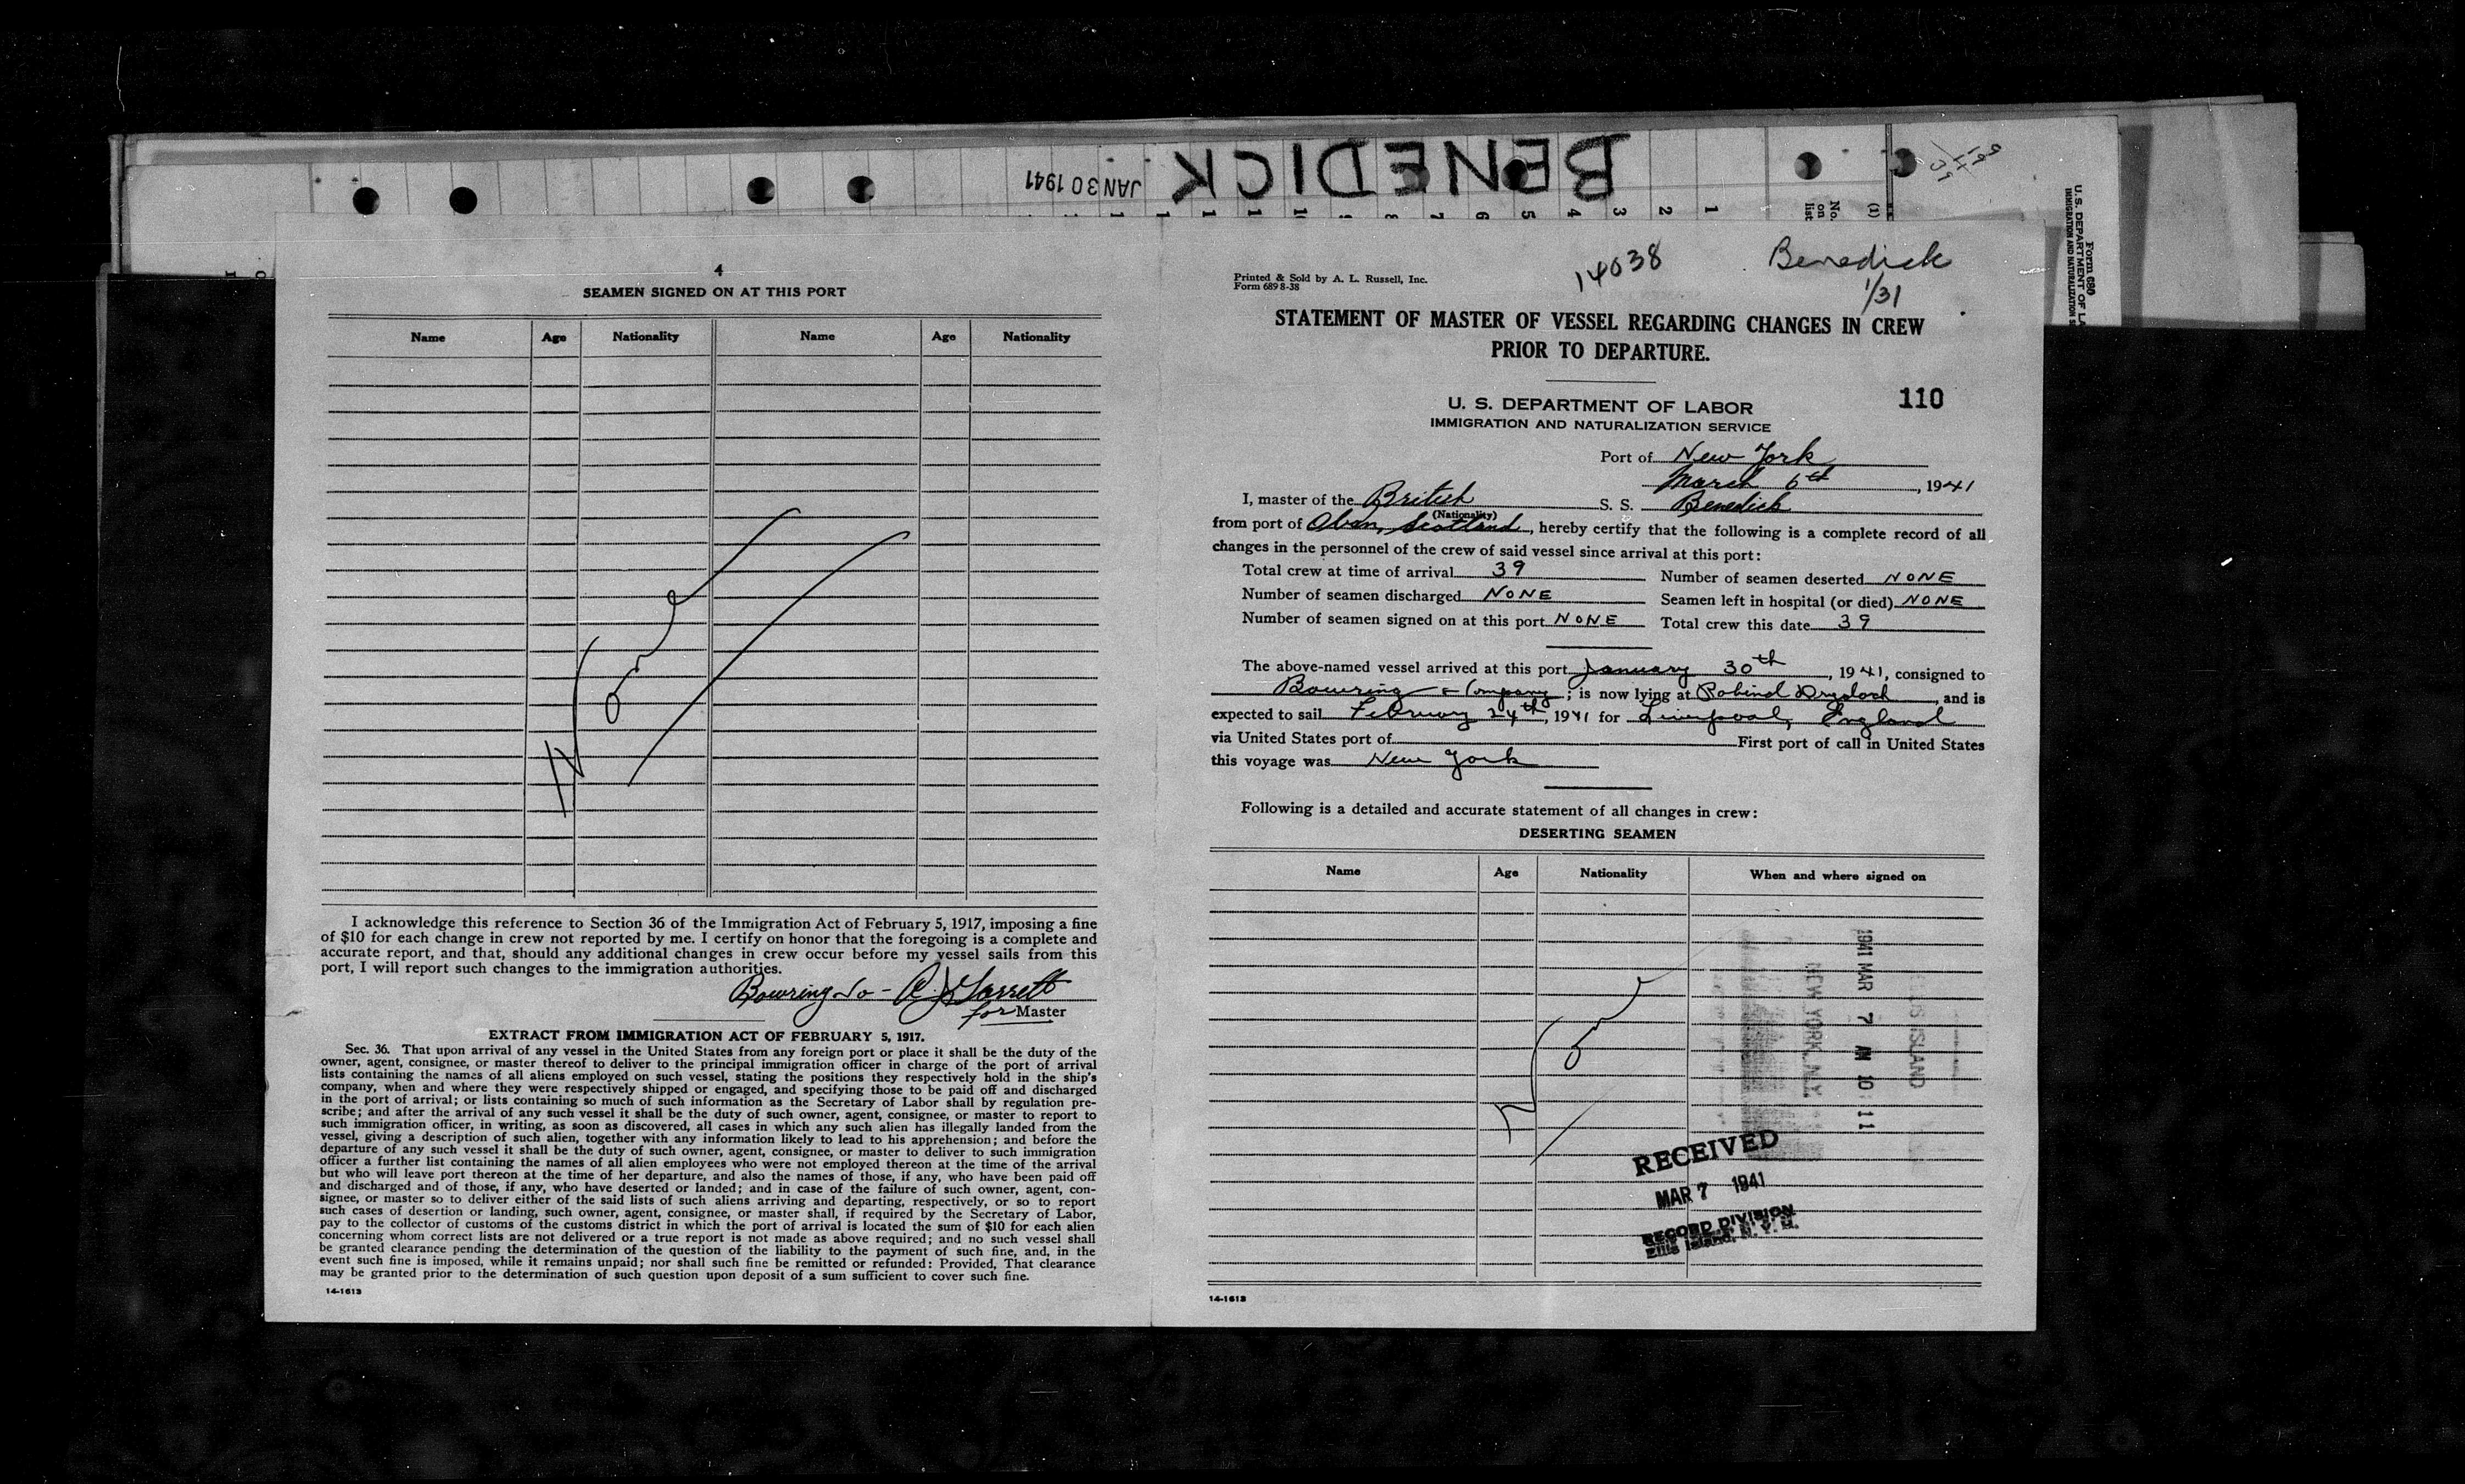 BENEDICK
JAN 30 1941
1 2 3 4 5 6 7 8 9 10
No. on list
(1)
Form 680
U. S. DEPARTMENT OF LA
IMMIGRATION AND NATURALIZATION S
4
SEAMEN SIGNED ON AT THIS PORT
Name Age Nationality Name Age Nationality
None
I acknowledge this reference to Section 36 of the Immigration Act of February 5, 1917, imposing a fine
of $10 for each change in crew not reported by me. I certify on honor that the foregoing is a complete and
accurate report, and that, should any additional changes in crew occur before my vessel sails from this
port, I will report such changes to the immigration authorities.
Bowring Co - Garrett
for Master
EXTRACT FROM IMMIGRATION ACT OF FEBRUARY 5, 1917.
Sec. 36. That upon arrival of any vessel in the United States from any foreign port or place it shall be the duty of the
owner, agent, consignee, or master thereof to deliver to the principal immigration officer in charge of the port of arrival
lists containing the names of all aliens employed on such vessel, stating the positions they respectively hold in the ship's
company, when and where they were respectively shipped or engaged, and specifying those to be paid off and discharged
in the port of arrival; or lists containing so much of such information as the Secretary of Labor shall by regulation pre-
scribe; and after the arrival of any such vessel it shall be the duty of such owner, agent, consignee, or master to report to
such immigration officer, in writing, as soon as discovered, all cases in which any such alien has illegally landed from the
vessel, giving a description of such alien, together with any information likely to lead to his apprehension; and before the
departure of any such vessel it shall be the duty of such owner, agent, consignee, or master to deliver to such immigration
officer a further list containing the names of all alien employees who were not employed thereon at the time of the arrival
but who will leave port thereon at the time of her departure, and also the names of those, if any, who have been paid off
and discharged and of those, if any, who have deserted or landed; and in case of the failure of such owner, agent, con-
signee, or master so to deliver either of the said lists of such aliens arriving and departing, respectively, or so to report
such cases of desertion or landing, such owner, agent, consignee, or master shall, if required by the Secretary of Labor,
pay to the collector of customs of the customs district in which the port of arrival is located the sum of $10 for each alien
concerning whom correct lists are not delivered or a true report is not made as above required; and no such vessel shall
be granted clearance pending the determination of the question of the liability to the payment of such fine, and, in the
event such fine is imposed, while it remains unpaid; nor shall such fine be remitted or refunded: Provided, That clearance
may be granted prior to the determination of such question upon deposit of a sum sufficient to cover such fine.
14-1613
Printed & Sold by A. L. Russell, Inc.
Form 689 8-38
14038
Benedick
1/31
STATEMENT OF MASTER OF VESSEL REGARDING CHANGES IN CREW
PRIOR TO DEPARTURE.
110
U. S. DEPARTMENT OF LABOR
IMMIGRATION AND NATURALIZATION SERVICE
Port of New York
March 6th, 1941
I, master of the British S. S. Benedick
(Nationality)
from port of Oban, Scotland, hereby certify that the following is a complete record of all
changes in the personnel of the crew of said vessel since arrival at this port:
Total crew at time of arrival 39 Number of seamen deserted NONE
Number of seamen discharged NONE Seamen left in hospital (or died) NONE
Number of seamen signed on at this port NONE Total crew this date 39
The above-named vessel arrived at this port January 30th, 1941, consigned to
Bowring & Company; is now lying at Robins Drydock, and is
expected to sail February 24th, 1941 for Liverpool, England
via United States port of First port of call in United States
this voyage was New York
Following is a detailed and accurate statement of all changes in crew:
DESERTING SEAMEN
Name Age Nationality When and where signed on
None
1941 MAR 7 AM 10:11
ELLIS ISLAND
NEW YORK, N.Y.
RECEIVED
MAR 7 1941
RECORD DIVISION
Ellis Island, N. Y. H.
14-1613